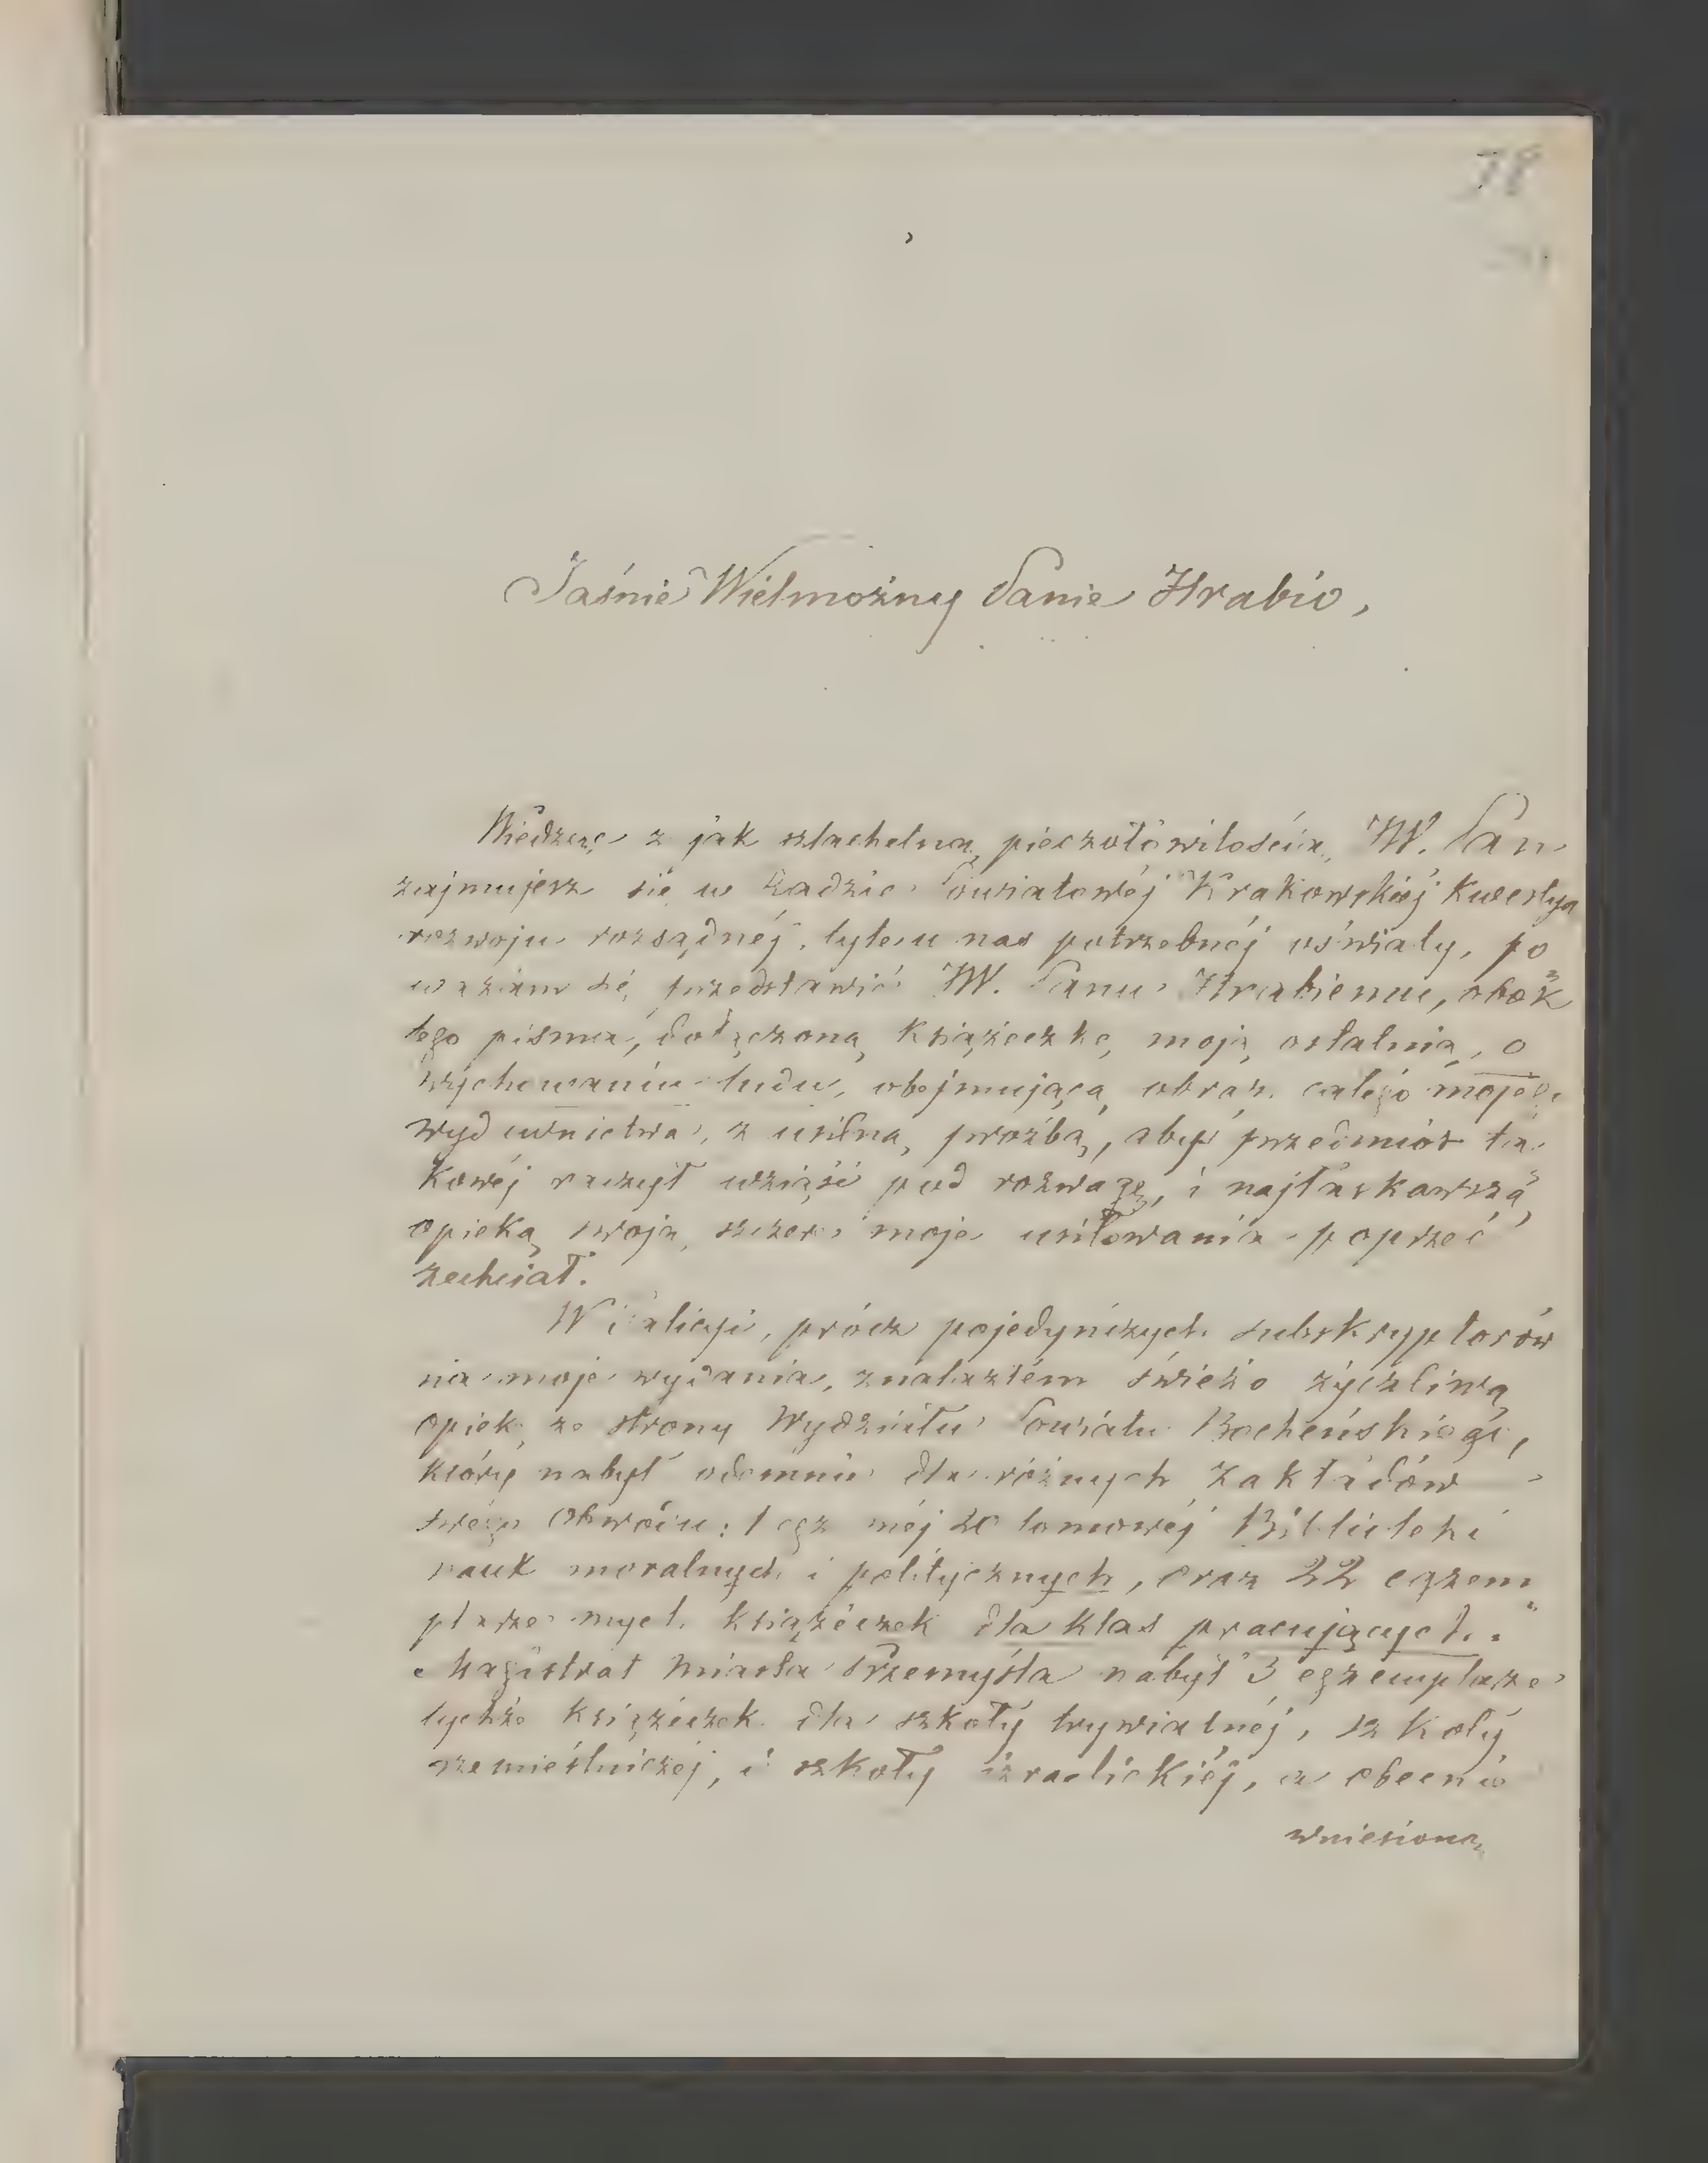 78
Jaśnie Wielmożny Panie Hrabio,
Wiedząc z jak szlachetną pieczołowitością JW. Pan
zajmujesz się w Radzie Powiatowéj Krakowskiéj kwestyą
rozwoju rozsądnéj, tyle u nas potrzebnéj oświaty, po
ważam się przedstawić JW. Panu Hrabiemu, obok
tego pisma, dołączoną książeczkę moją ostatnią, o
wychowaniu ludu, obejmującą obraz całego mojego
wydawnictwa, z usilną prożbą, abyś przedmiot ta
kowéj raczył wziąść pod rozwagę, i najłaskawszą
opieką swoją szczere moje usiłowania poprzeć
zechciał.
W Galicyi, prócz pojedyńczych subskryptorów
na moje wydania, znalazłém świeżo życzliwą
opiekę ze strony Wydziału Powiatu Bocheńskiego,
który nabył odemnie dla różnych zakładów
swego obwodu: 1 egz méj 20 tomowéj Biblioteki
nauk moralnych i politycznych, oraz 22 egzem
plarze mych książeczek dla klas pracujących.
Magistrat miasta Przemyśla nabył 3 egzemplarze
tychże książeczek dla szkoły trywialnéj, szkoły
rzemieślniczéj, i szkoły izraelickiéj, a obecnie
wniesioną